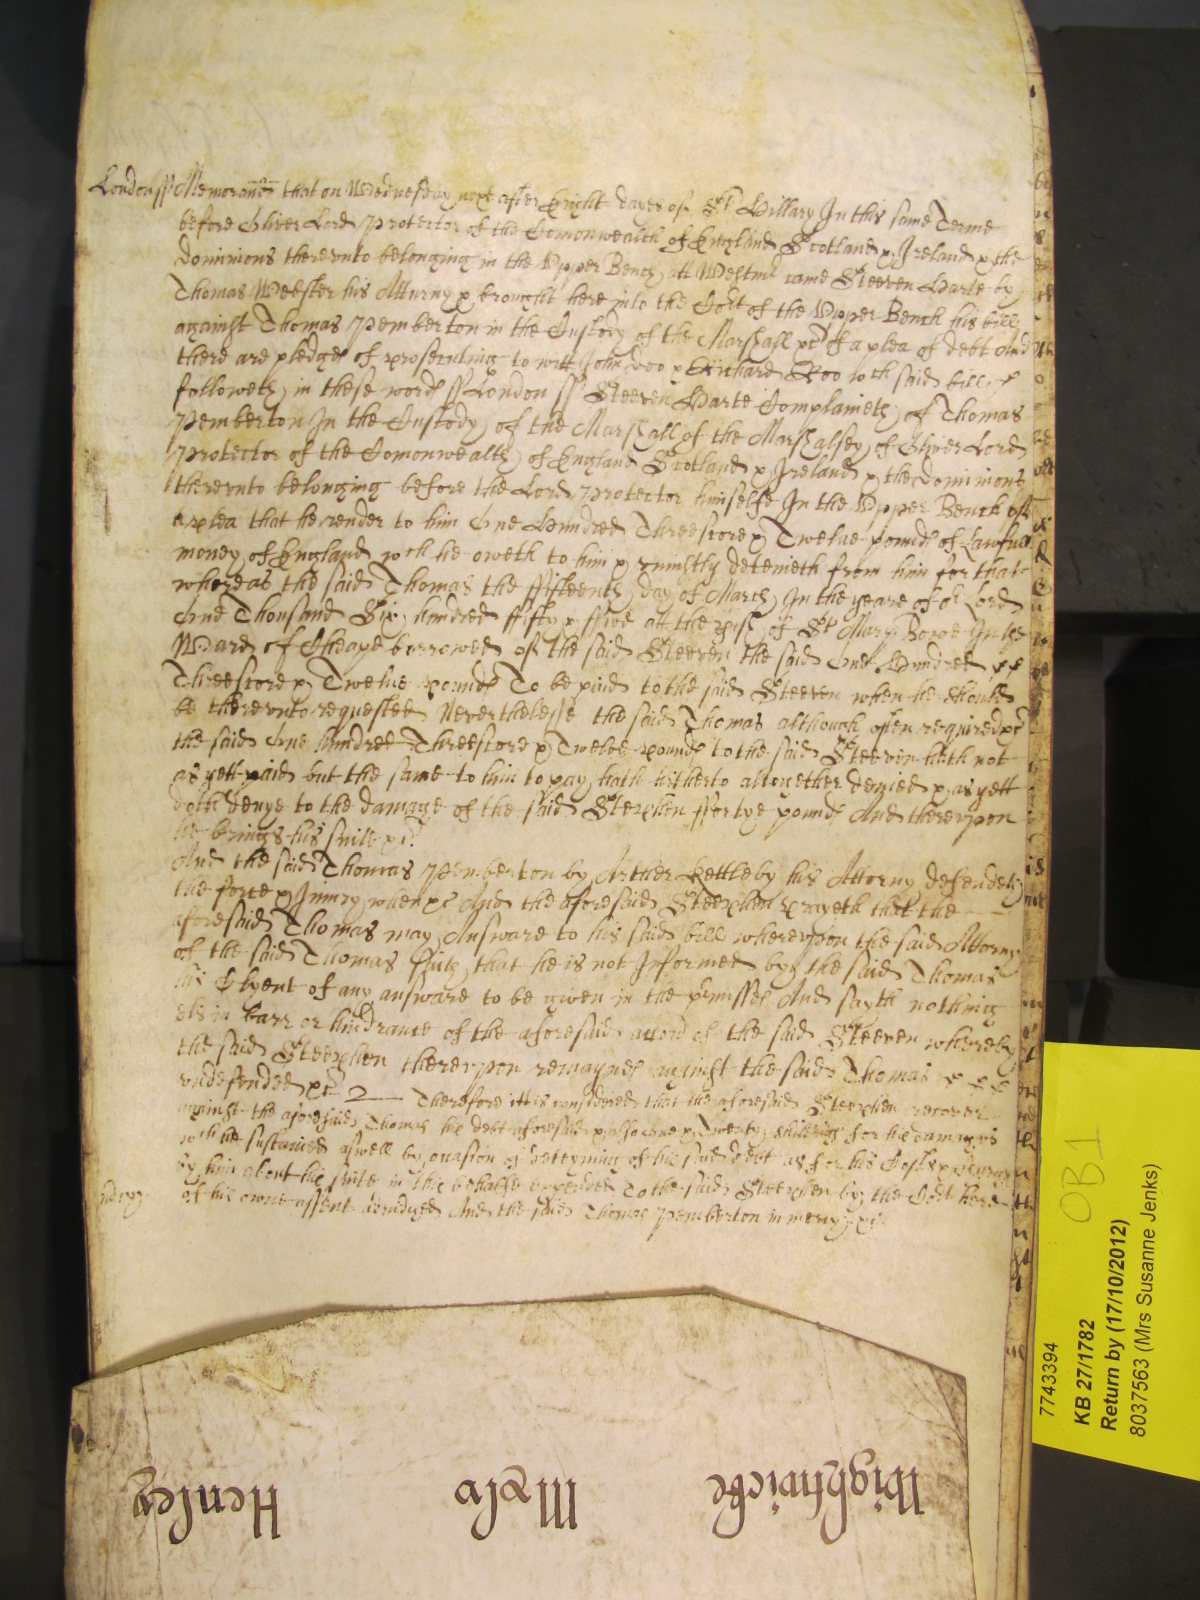 London ss Memorand that on Wednesday next after Eight dayes of St Hillary In this same Terme
before Oliver Lord Protector of the Comonwealth of England Scotland & Ireland & the
Dominions therevnto belonging in the Vpper Bench att Westmr came Steeven Harte by
Thomas Webster his Atturny & brought here into the Cort of the Vpper Bench his bill
against Thomas Pemberton in the Custody of the Marshall &c of a plea of debt And
there are pledges of prosecuting to witt John Doo & Richard Roo wch said bill
followeth in these words ss London ss Steeven Harte Complaineth of Thomas
Pemberton In the Custody of the Marshall of the Marshalsey of Oliver Lord
Protector of the Comonwealth of England Scotland & Ireland & the Dominions
therevnto belonging before the Lord Protector himselfe In the Vpper Bench of
a plea that he render to him One Hundred Threescore & Twelve pounds of Lawfull
money of England wch he oweth to him & vniustly deteineth from him for that
whereas the said Thomas the ffifteenth day of March In the yeare of or Lord
One Thousand Six hundred ffifty & ffive att the pish of St Mary Bowe In the
Ward of Cheape borrowed of the said Steeven the said One Hundred
Threescore & Twelve pounds To be paid to the said Steeven when he should
be therevnto requested Neverthelesse the said Thomas although often required &c
the said One Hundred Threescore & Twelve pounds to the said Steeven hath not
as yett paid but the same to him to pay hath hitherto altogether denied & as yett
doth denye to the damage of the said Stephen ffortye pounds And therevpon
he brings his suite &c
And the said Thomas Pemberton by Arther Kettleby his Attorny defendeth
the force & Iniury when &c And the aforesaid Steephen prayeth that the
aforesaid Thomas may Answare to his said bill wherevpon the said Attorny
of the said Thomas saith that he is not Informed by the said Thomas
his Clyent of any answare to be given in the prmisses And sayth nothing
els in barr or hindrance of the aforesaid accon of the said Steeven whereby
the said Steephen therevpon remaynes against the said Thomas
vndefended &c Therefore itt is considered that the aforesaid Steephen recover
against the aforesaid Thomas his debt aforesaid & alsoe One & Twenty shillings for his damages
wch he sustained aswell by ocasion of deteyning of his said debt as for his Costs & charges
by him about his suite in this behalfe expended To the said Steephen by the Cort here
of his owne assent adiudged And the said Thomas Pemberton in mercy &c
Wightwicke Mylo Henley
7743394
KB 27/1782
Return by (17/10/2012)
8037563 (Mrs Susanne Jenks)
OB1